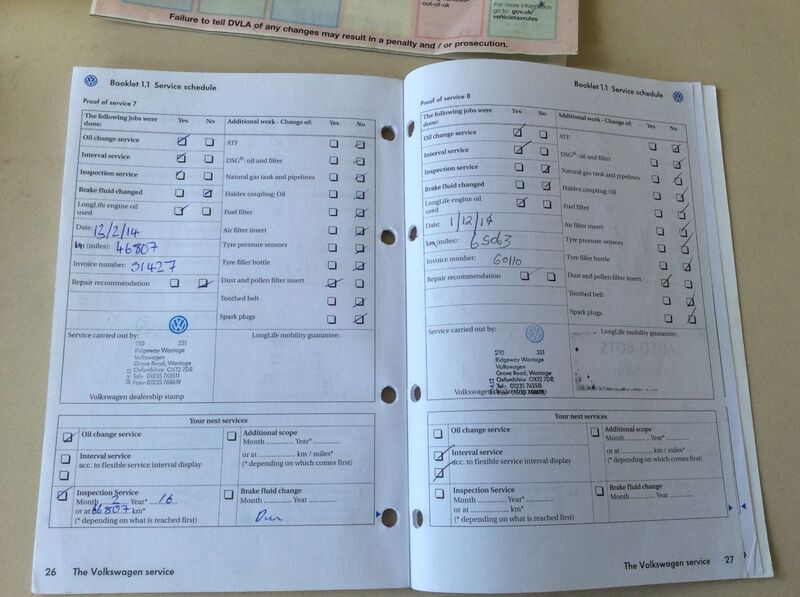 out-of-uk
For more information
go to: gov.uk/
vehicletaxrules
Failure to tell DVLA of any changes may result in a penalty and / or prosecution.
Booklet 1.1 Service schedule
Proof of service 7
The following jobs were done: Yes No Additional work - Change of: Yes No
Oil change service
ATF
Interval service
DSG®: oil and filter
Inspection service
Natural gas tank and pipelines
Brake fluid changed
Haldex coupling: Oil
LongLife engine oil used
Fuel filter
Date: 13/2/14
Air filter insert
km (miles): 46807
Tyre pressure sensors
Invoice number: 31427
Tyre filler bottle
Repair recommendation
Dust and pollen filter insert
Toothed belt
Spark plugs
Service carried out by:
LongLife mobility guarantee:
210 331
Ridgeway Wantage
Volkswagen
Grove Road, Wantage
Oxfordshire OX12 7DR
Tel: 01235 765511
Fax: 01235 768619
Volkswagen dealership stamp
Your next services
Oil change service
Additional scope
Month Year*
Interval service
acc. to flexible service interval display
or at km / miles*
(* depending on which comes first)
Inspection Service
Month 2 Year* 16
or at 66807 km*
(* depending on what is reached first)
Brake fluid change
Month Year
26 The Volkswagen service
Booklet 1.1 Service schedule
Proof of service 8
The following jobs were done: Yes No Additional work - Change of: Yes No
Oil change service
ATF
Interval service
DSG®: oil and filter
Inspection service
Natural gas tank and pipelines
Brake fluid changed
Haldex coupling: Oil
LongLife engine oil used
Fuel filter
Date: 1/12/14
Air filter insert
km (miles): 65063
Tyre pressure sensors
Invoice number: 60110
Tyre filler bottle
Repair recommendation
Dust and pollen filter insert
Toothed belt
Spark plugs
Service carried out by:
LongLife mobility guarantee:
210 331
Ridgeway Wantage
Volkswagen
Grove Road, Wantage
Oxfordshire OX12 7DR
Tel: 01235 765511
Your next services
Oil change service
Additional scope
Month Year*
Interval service
acc. to flexible service interval display
or at km / miles*
(* depending on which comes first)
Inspection Service
Month Year*
or at km*
(* depending on what is reached first)
Brake fluid change
Month Year
The Volkswagen service 27